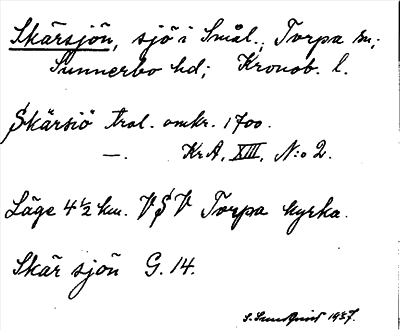 Skärsjön, sjö i Smål.; Torpa sn;
Sunnerbo hd; Kronob. l.
Skärsiö trol. omkr. 1700.
—. KrA, XIII, N:o 2.
Läge 4½ km. VSV Torpa kyrka.
Skär sjön G. 14.
1937.